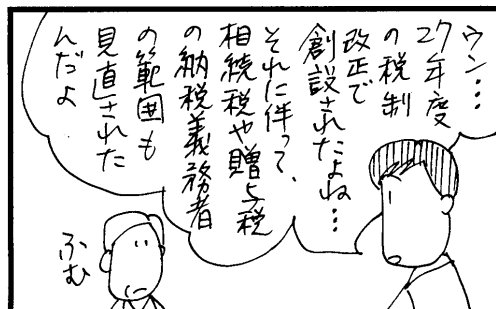 ウン…
27年度
の税制
改正で
創設されたよね…
それに伴って、
相続税や贈与税
の納税義務者
の範囲も
見直された
んだよ
ふむ